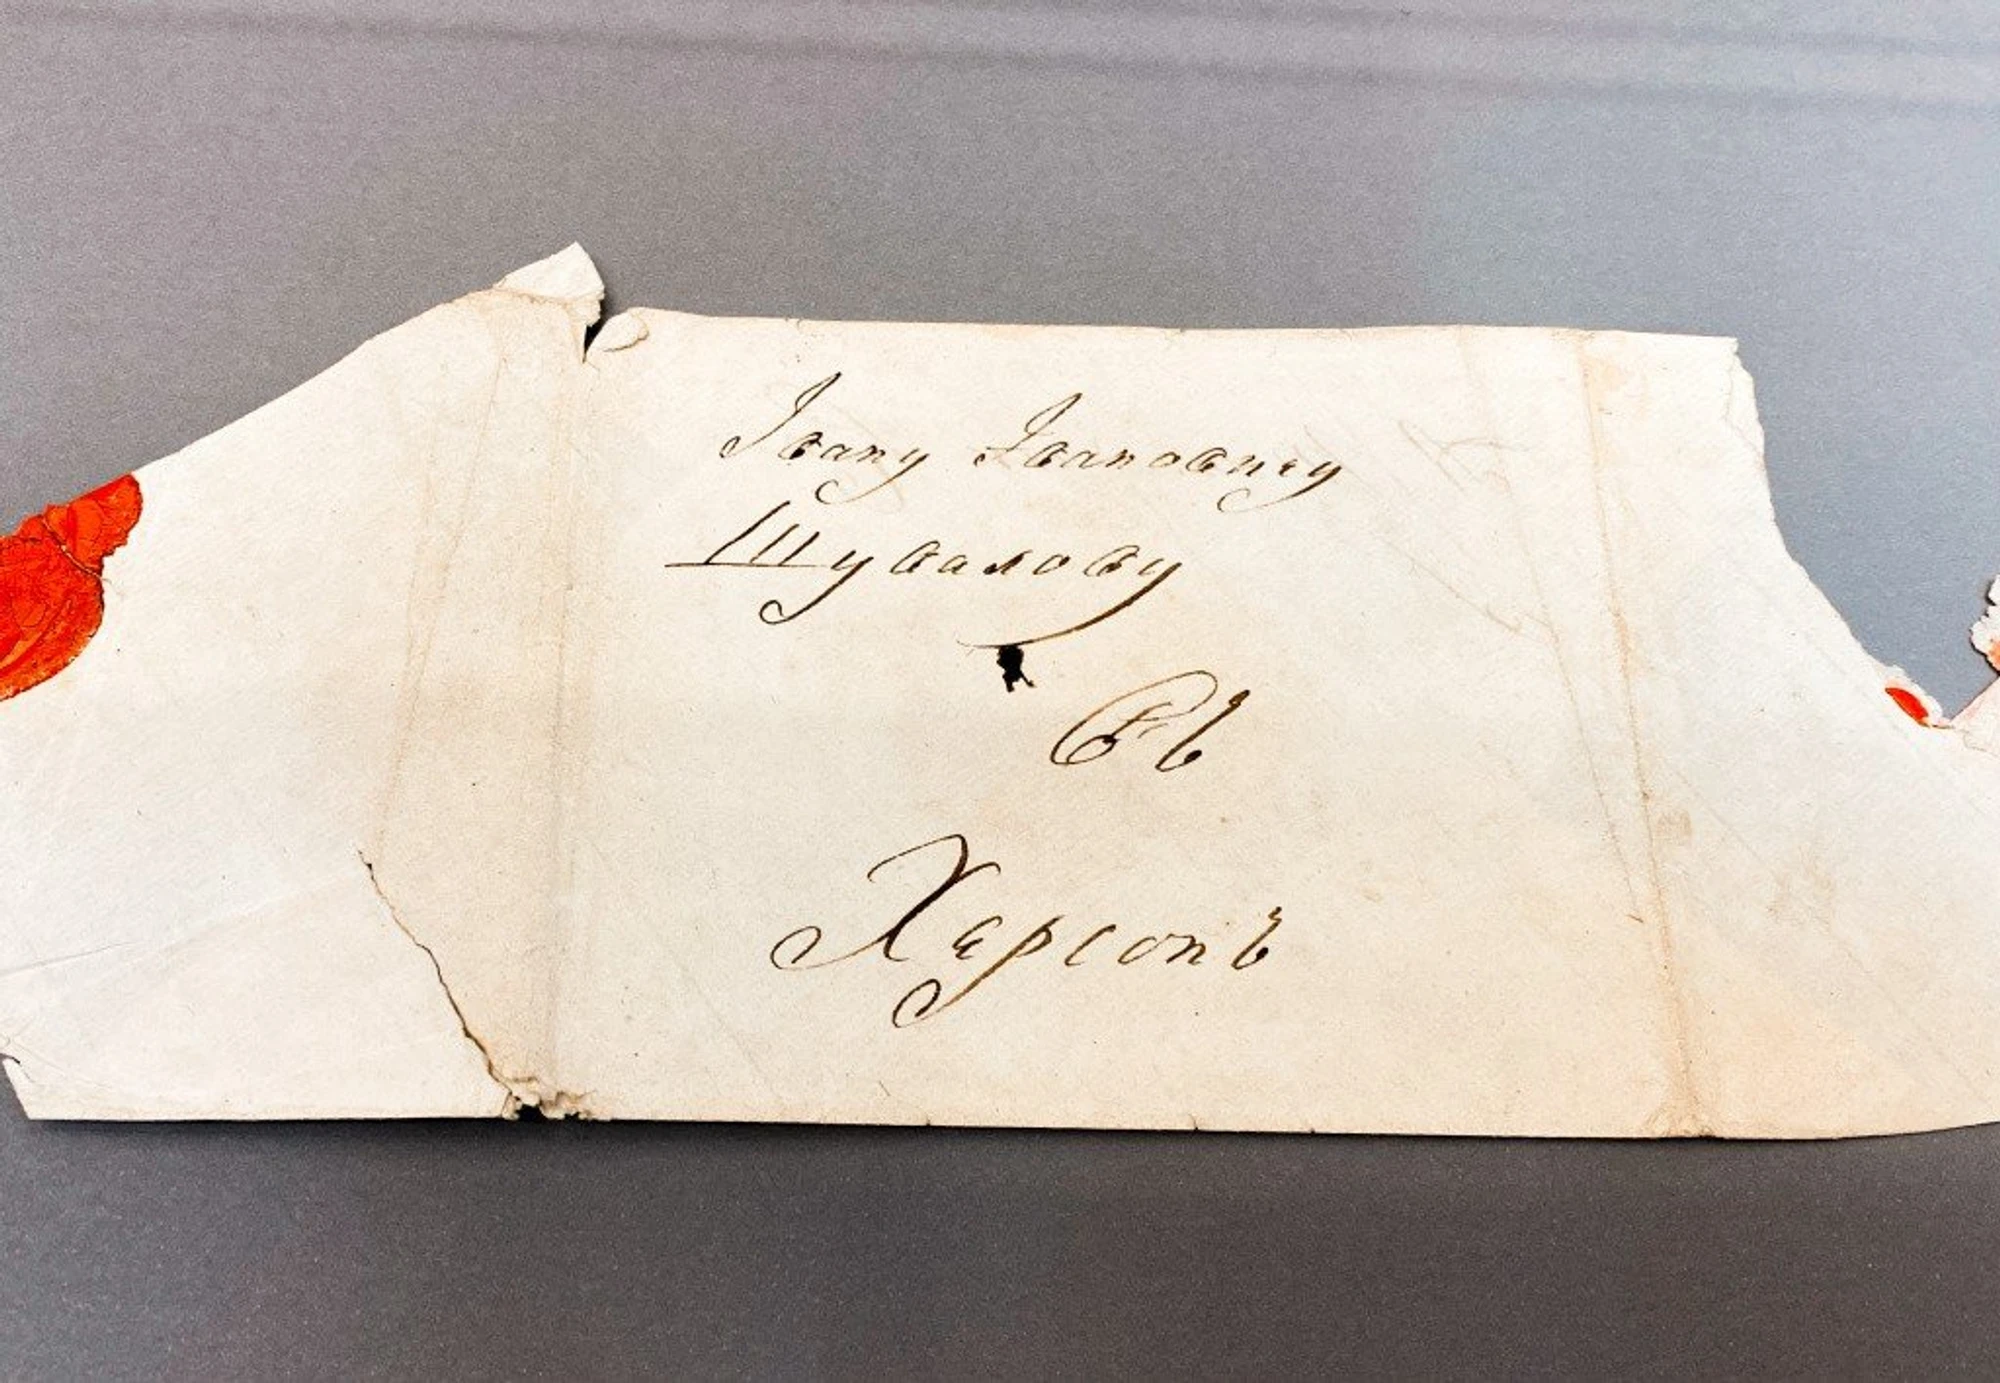 Івану Івановичу
Шувалову
Въ
Херсонъ